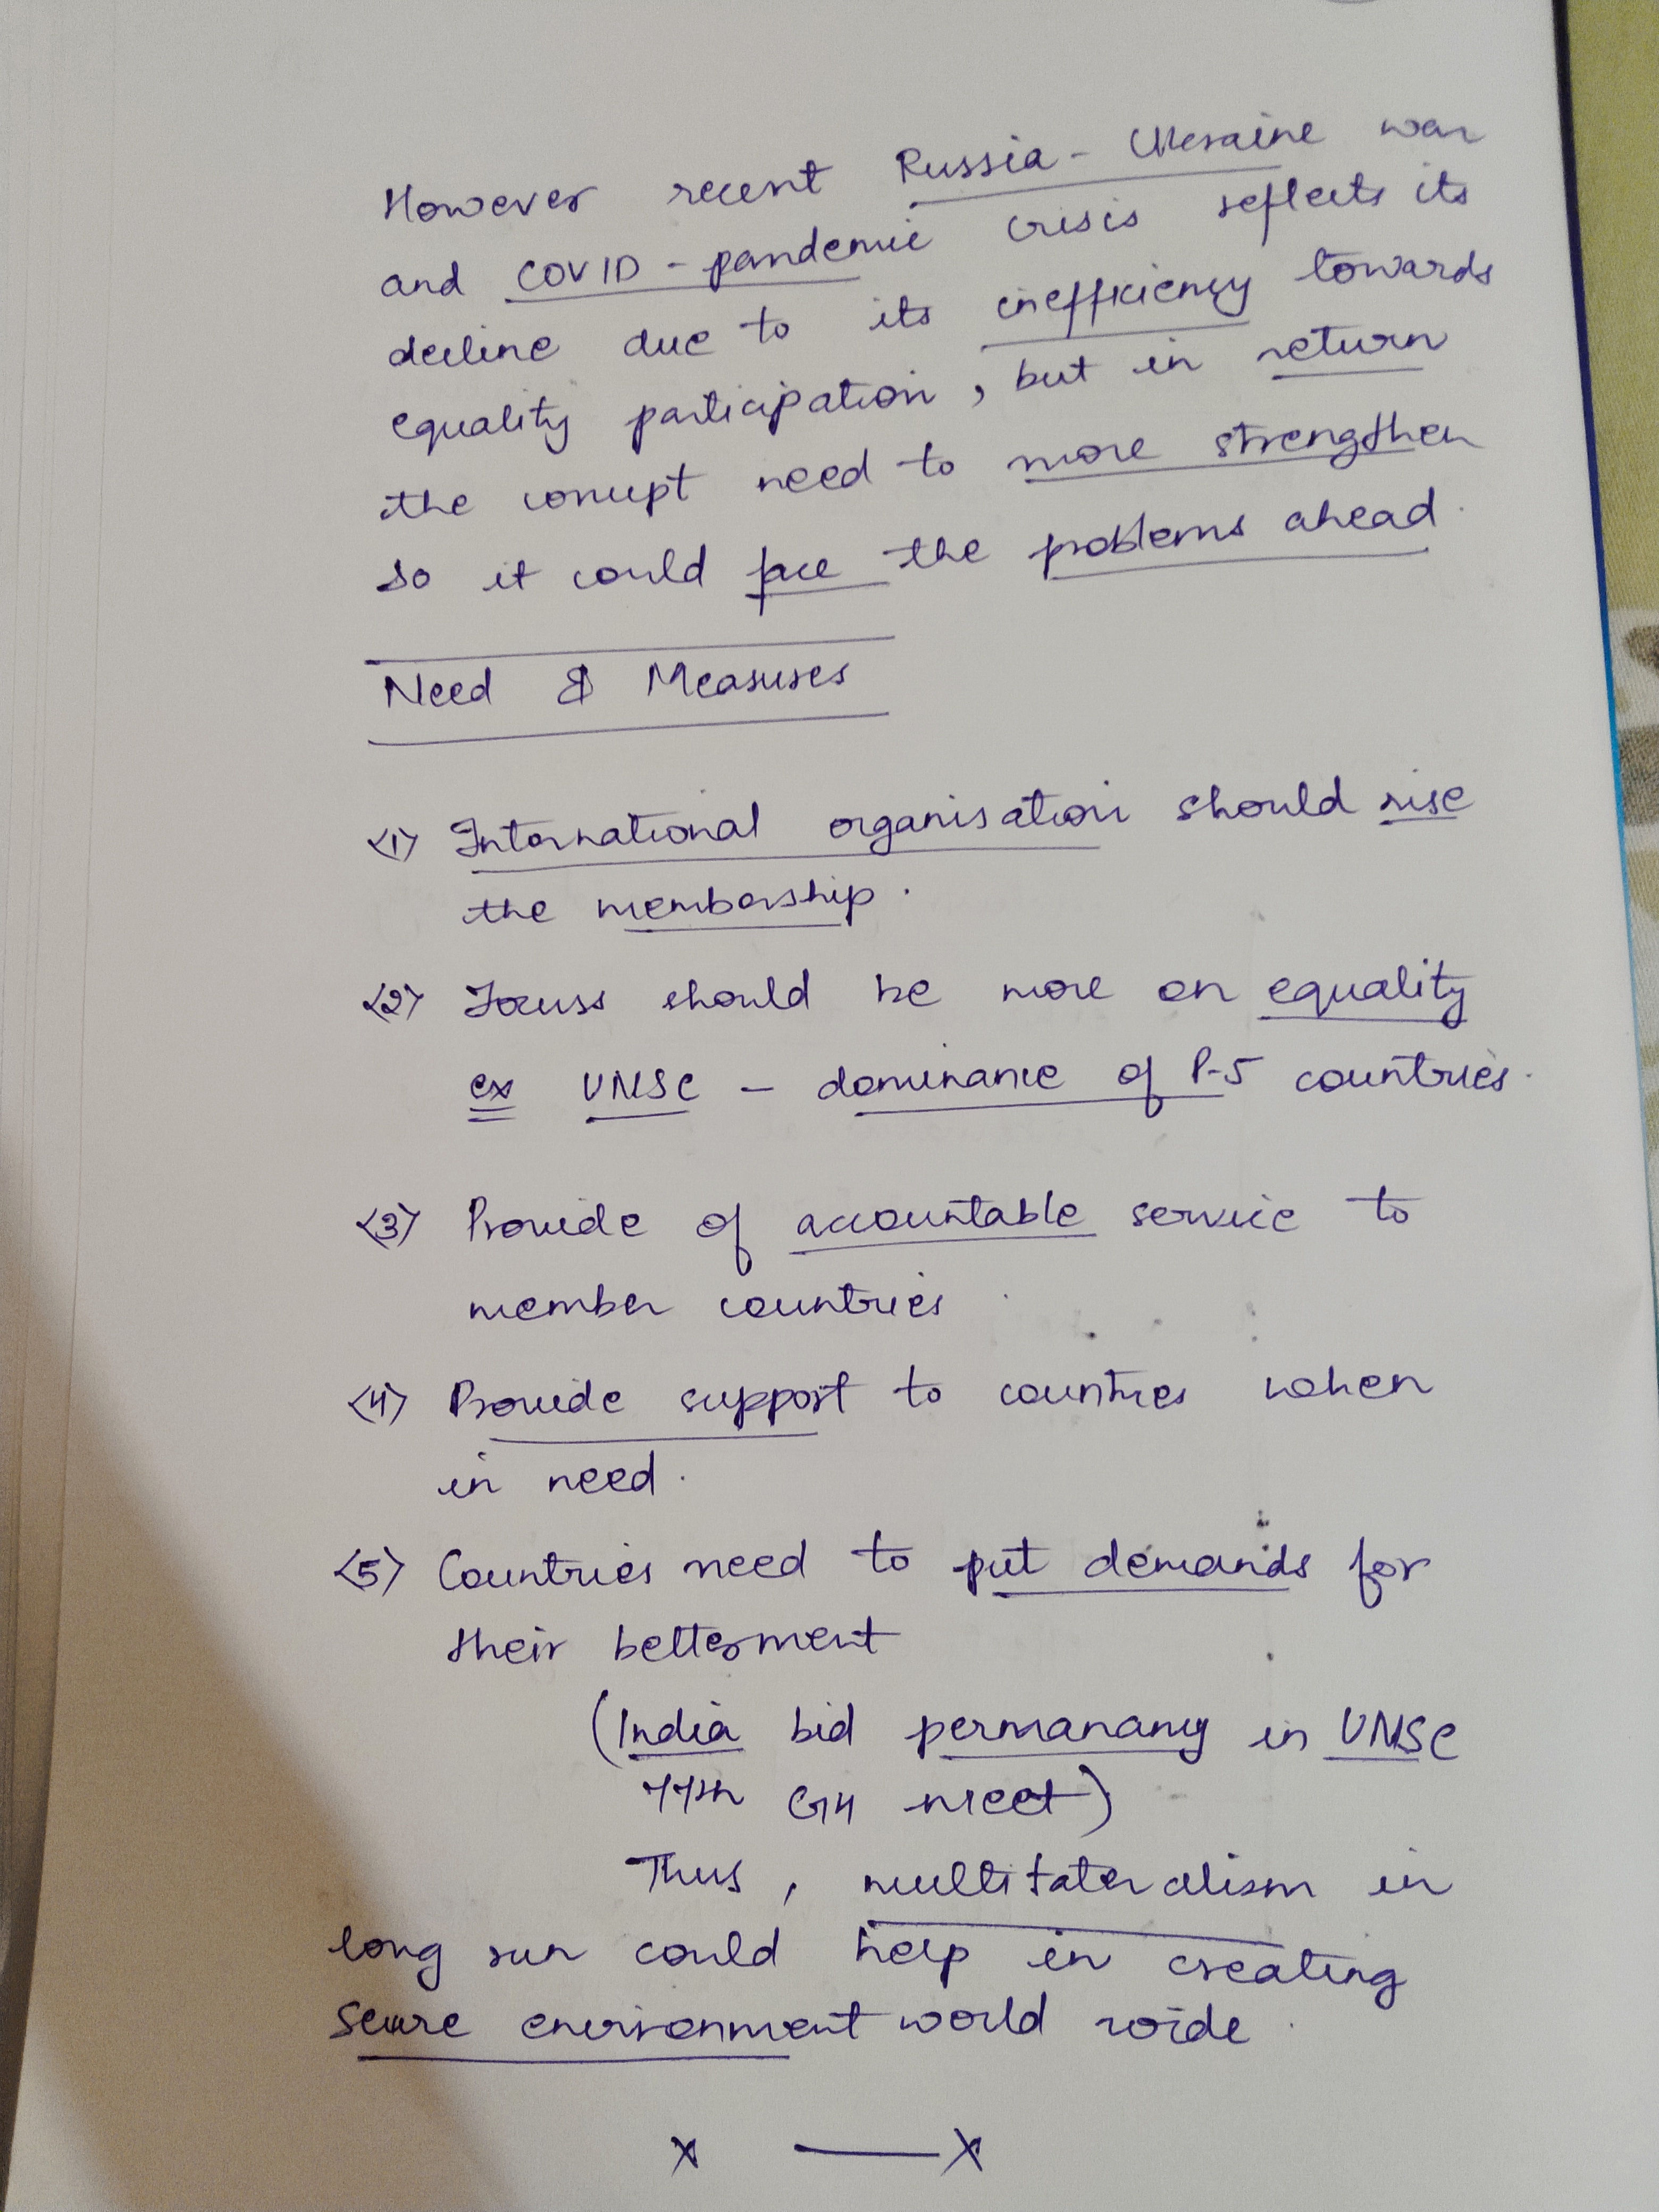 However recent Russia - Ukraine war
and COVID - pandemic crisis reflects its
decline due to its inefficiency towards
equality participation, but in return
the concept need to more strengthen
so it could face the problems ahead.
Need & Measures
<1> International organisation should rise
the membership.
<2> Focuss should be more on equality
ex UNSC - dominance of P-5 countries.
<3> Provide of accountable service to
member countries
<4> Provide support to countries when
in need.
<5> Countries need to put demands for
their betterment
(India bid permanancy in UNSC
77th G4 meet)
Thus, multilateralism in
long run could help in creating
secure environment world wide.
x —x